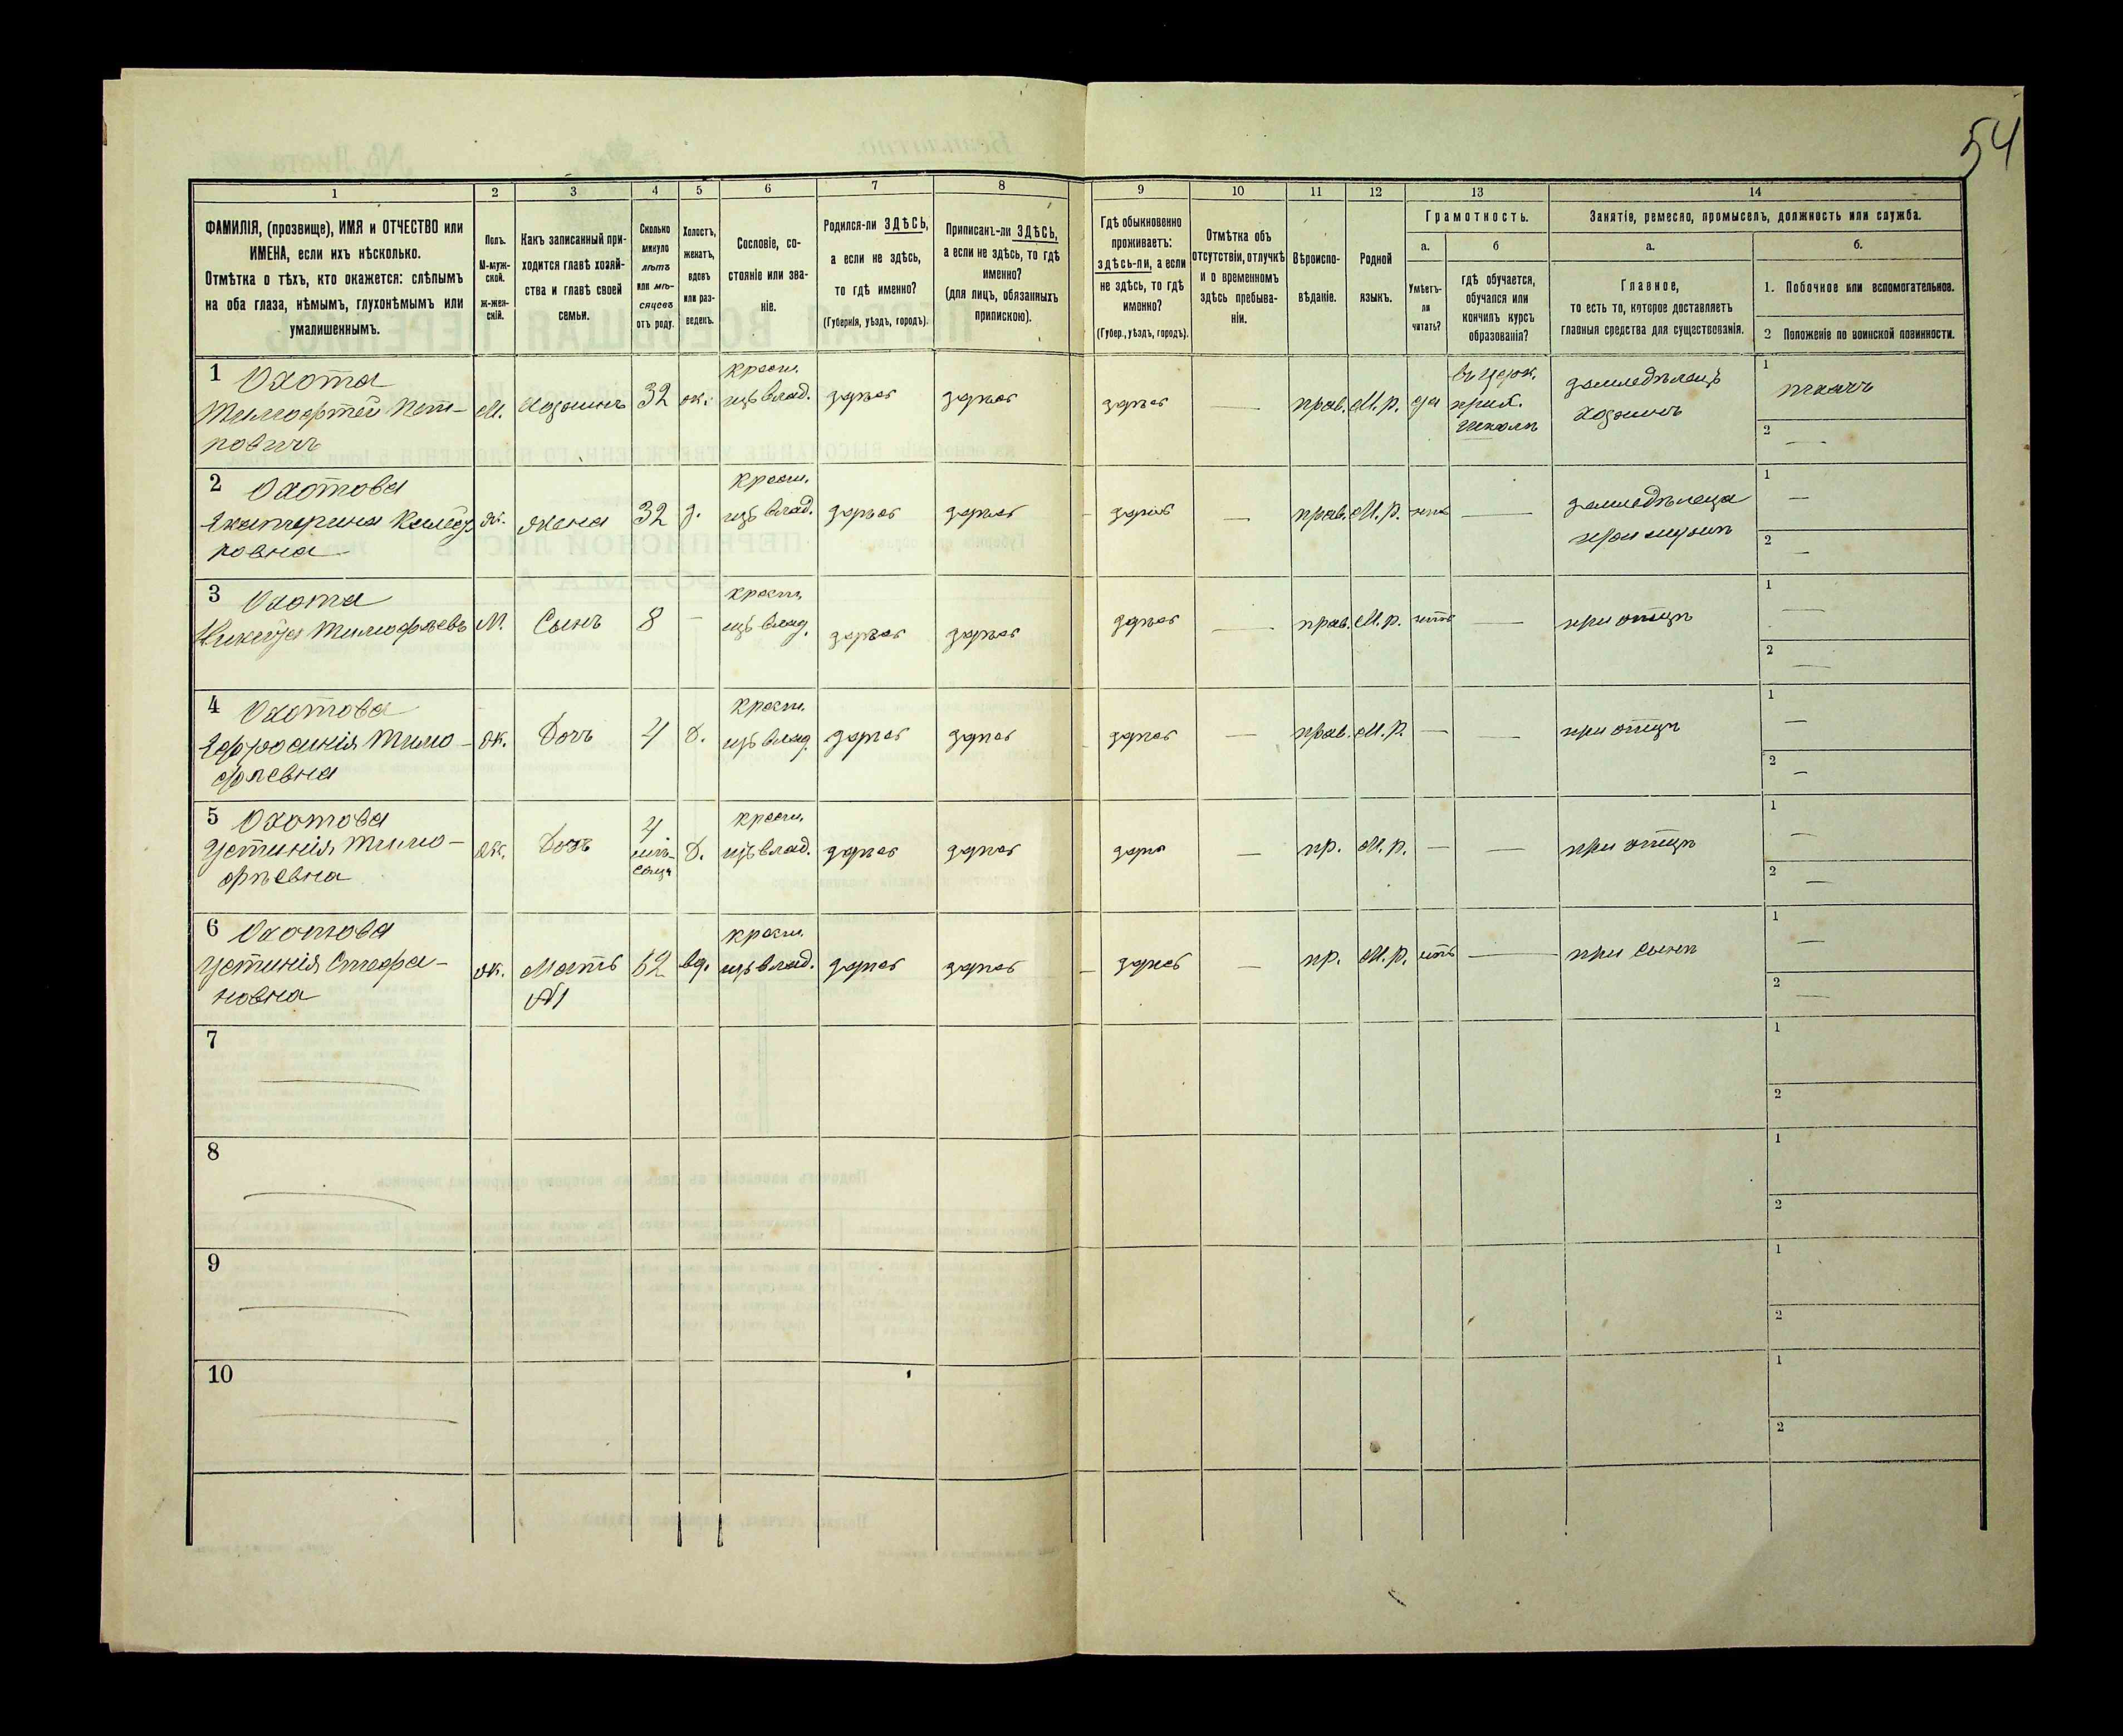 54
1
2
3
4
5
6
7
8
9
10
11
12
13
14
ФАМИЛІЯ, (прозвище), ИМЯ и ОТЧЕСТВО или
ИМЕНА, если ихъ нѣсколько.
Отмѣтка о тѣхъ, кто окажется: слѣпымъ
на оба глаза, нѣмымъ, глухонѣмымъ или
умалишеннымъ.
Полъ.
М-муж-
ской.
ж-жен-
скій.
Какъ записанный при-
ходится главѣ хозяй-
ства и главѣ своей
семьи.
Сколько
минуло
лѣтъ
или мѣ-
сяцевъ
отъ роду.
Холостъ,
женатъ,
вдовъ
или раз-
веденъ.
Сословіе, со-
стояніе или зва-
ніе.
Родился-ли ЗДѢСЬ,
а если не здѣсь,
то гдѣ именно?
(Губернія, уѣздъ, городъ).
Приписанъ-ли ЗДѢСЬ,
а если не здѣсь, то гдѣ
именно?
(для лицъ, обязанныхъ
припискою).
Гдѣ обыкновенно
проживаетъ:
здѣсь-ли, а если
не здѣсь, то гдѣ
именно?
(Губер., уѣздъ, городъ).
Отмѣтка объ
отсутствіи, отлучкѣ
и о временномъ
здѣсь пребыва-
ніи.
Вѣроиспо-
вѣданіе.
Родной
языкъ.
Грамотность.
а.
б
Умѣетъ-
ли
читать?
гдѣ обучается,
обучался или
кончилъ курсъ
образованія?
Занятіе, ремесло, промыселъ, должность или служба.
а.
б.
Главное,
то есть то, которое доставляетъ
главныя средства для существованія.
1. Побочное или вспомогательное.
2 Положеніе по воинской повинности.
1 Охота
Тимофтей
повичъ
М. Хозяинъ 32 ж. крест. изъ влад. здѣсь здѣсь здѣсь — прав. М.р. да въ церк. прих. школѣ земледѣлецъ хозяинъ
1 ткачъ
2 —
2 Охотова
Екатерина
ровна
ж. жена 32 з. крест. изъ влад. здѣсь здѣсь здѣсь — прав. М.р. нѣтъ — при мужѣ
1 —
2 —
3 Охота
Никита Тимофѣевъ
М. Сынъ 8 — крест. изъ влад. здѣсь здѣсь здѣсь — прав. М.р. нѣтъ — при отцѣ
1 —
2 —
4 Охотова
Ефросинія Тимо-
фѣевна
ж. Дочь 4 д. крест. изъ влад. здѣсь здѣсь здѣсь — прав. М.р. — — при отцѣ
1 —
2 —
5 Охотова
Устинія Тимо-
фѣевна
ж. Дочь 4 мѣ-сяца д. крест. изъ влад. здѣсь здѣсь здѣсь — пр. М.р. — — при отцѣ
1 —
2 —
6 Охотова
Устинія Стефа-
новна
ж. Мать №1 62 вд. крест. изъ влад. здѣсь здѣсь здѣсь — пр. М.р. нѣтъ — при сынѣ
1 —
2 —
7
1
2
8
1
2
9
1
2
10
1
2